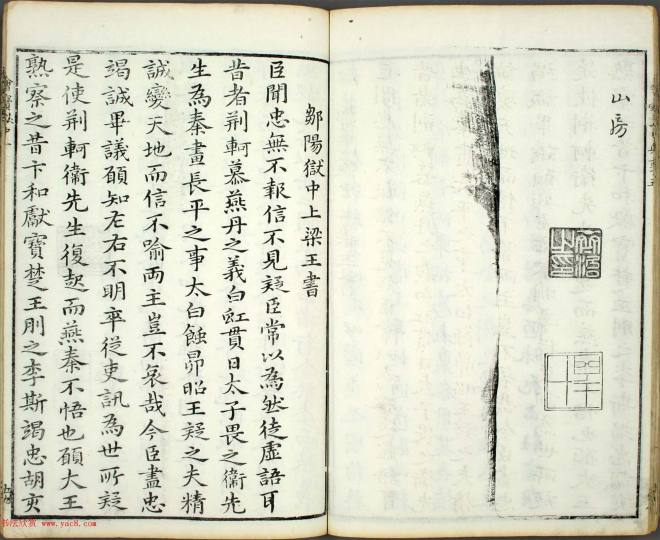 山房
鄒陽獄中上梁王書
臣聞忠無不報信不見疑臣常以為然徒虛語耳
昔者荆軻慕燕丹之義白虹貫日太子畏之衞先
生為秦畫長平之事太白蝕昴昭王疑之夫精
誠變天地而信不喻兩王豈不哀哉今臣盡忠
竭誠畢議願知左右不明卒從吏訊為世所疑
是使荆軻衞先生復起而燕秦不悟也願大王
熟察之昔卞和獻寶楚王刖之李斯竭忠胡亥
书法欣赏 www.yac8.com